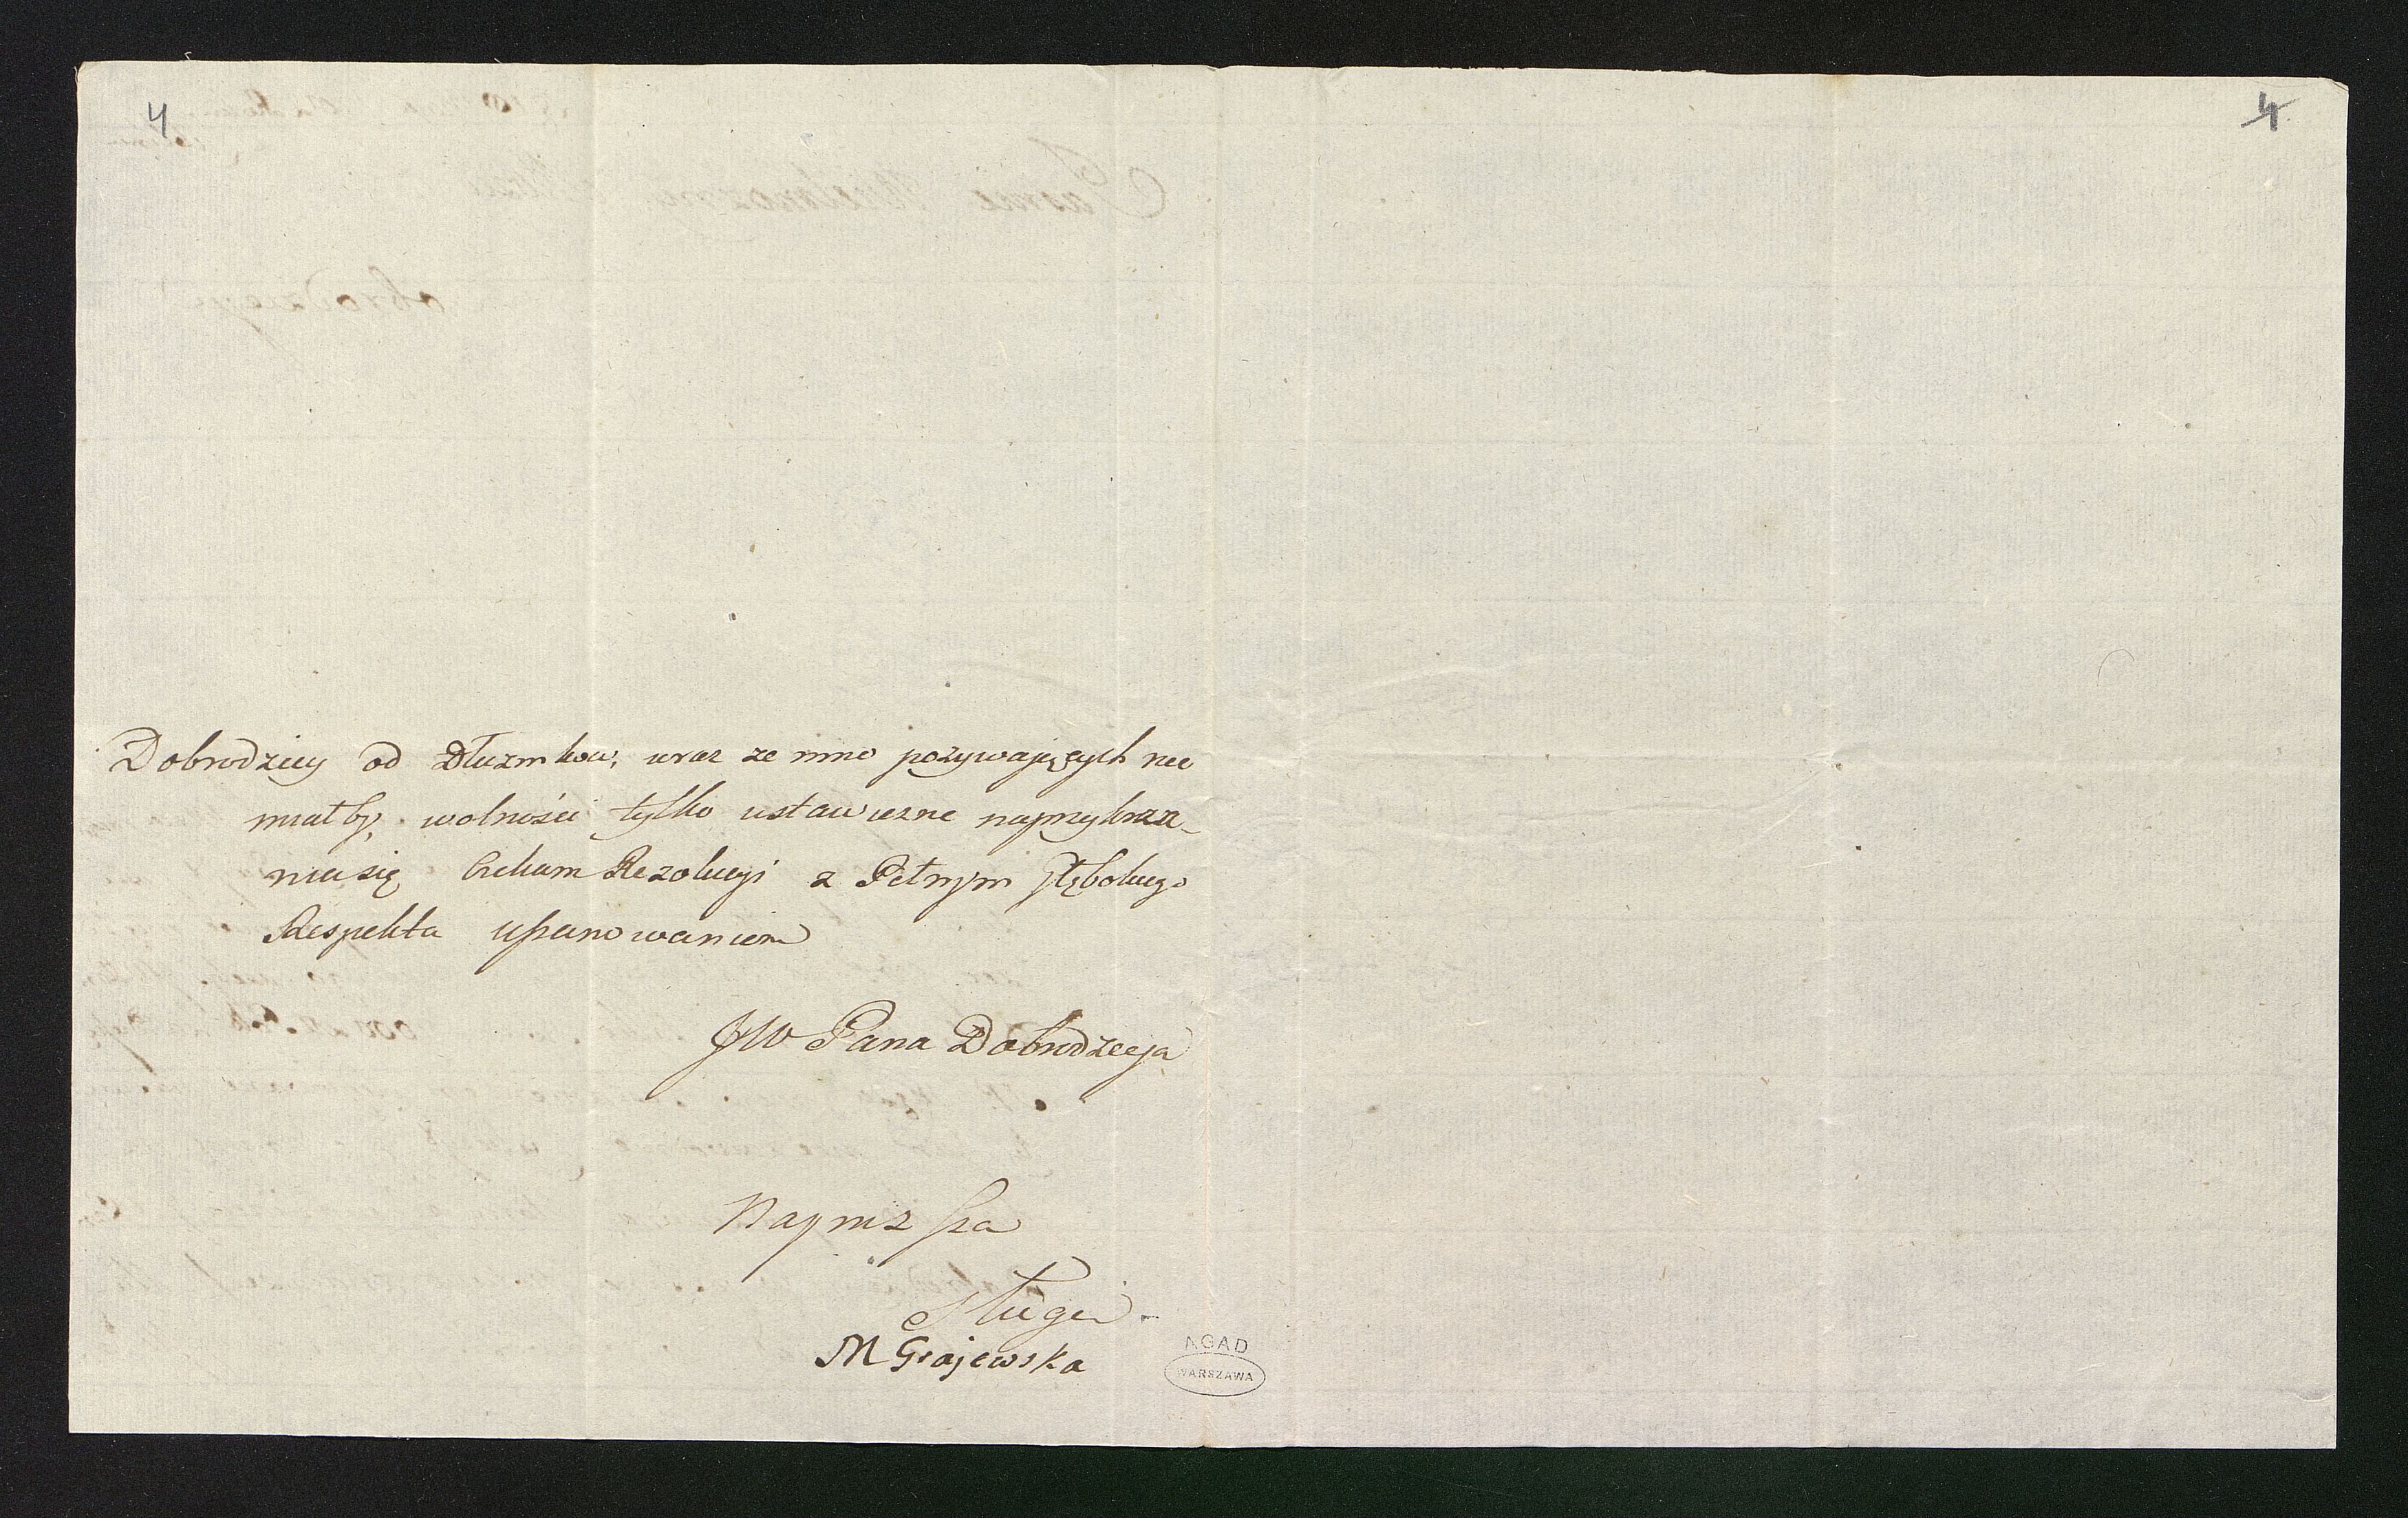 4
4
Dobrodziey od Dłuznikow, wraz ze mno pozywaięcych nie
miałby, wolności tylko ustawiczne naprzykrza-
nia się Czekam Rezolucyi z Pełnym głębokiego
Respekta uszanowaniem
JW Pana Dobrodzieja
Naynizsza
Sługa
M Grajewska
AGAD
WARSZAWA